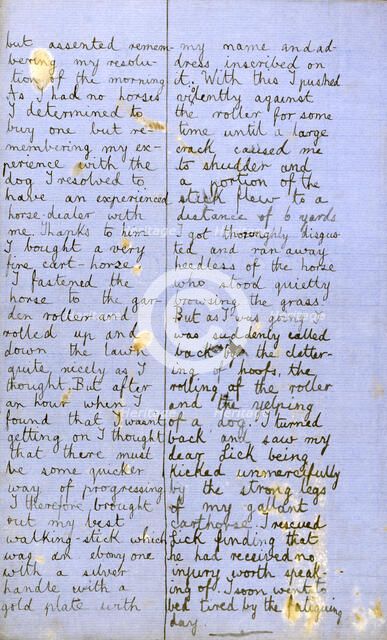 but assented remem-
bering my resolu-
tion of the morning
As I had no horses
I determined to
buy one but re-
membering my ex-
perience with the
dog I resolved to
have an experienced
horse-dealer with
me. Thanks to him
I bought a very
fine cart-horse.
I fastened the
horse to the gar-
den roller and
rolled up and
down the lawn
quite nicely as I
thought. But after
an hour when I
found that I wasnt
getting on I thought
that there must
be some quicker
way of progressing
I therefore brought
out my best
walking-stick which
was an ebony one
with a silver
handle with a
gold plate with
my name and ad-
dress inscribed on
it. With this I pushed
violently against
the roller for some
time until a large
crack caused me
to shudder and
a portion of the
stick flew to a
distance of 6 yards
I got thoroughly disgus-
ted and ran away
heedless of the horse
who stood quietly
browsing the grass.
But as I was going I
was suddenly called
back by the clatter-
ing of hoofs, the
rolling of the roller
and the yelping
of a dog. I turned
back and saw my
dear Lick being
kicked unmercifully
by the strong legs
of my gallant
carthorse. I rescued
Lick finding that
he had received no
injury worth speak-
ing of. I soon went to
bed tired by the fatiguing
day.